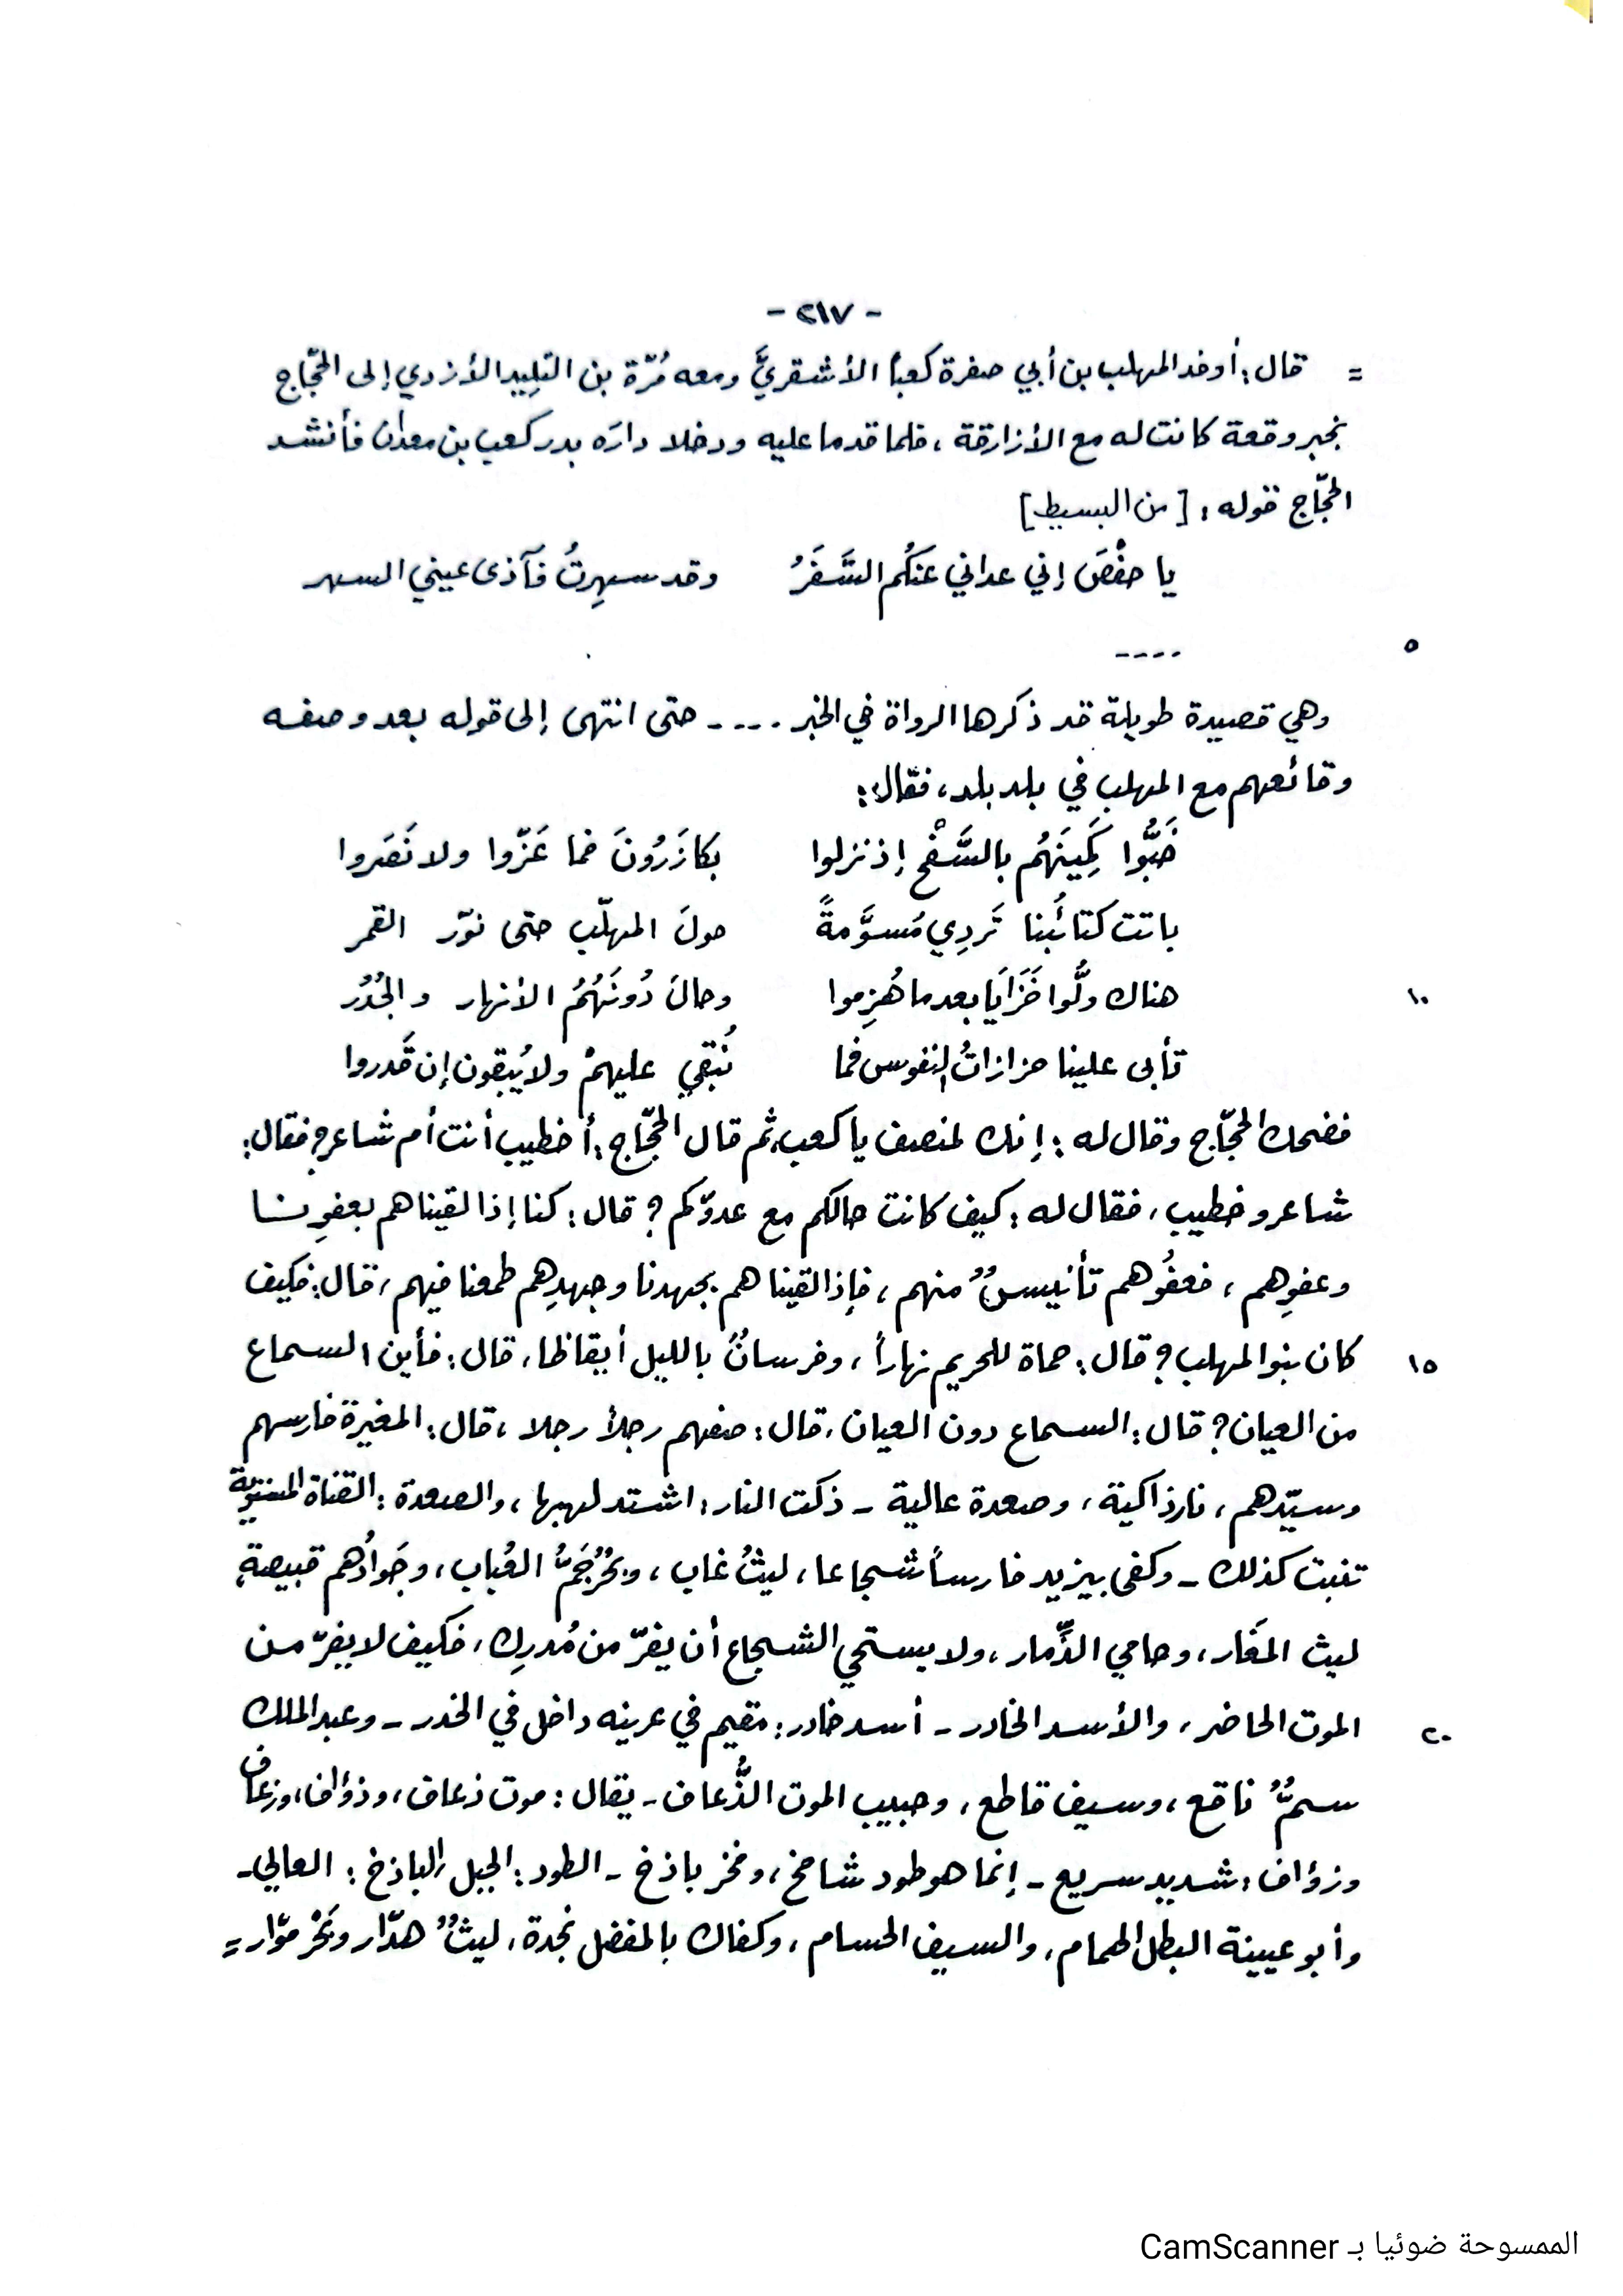 - ٢١٧ -
= قال: أوفد المهلب بن أبي صفرة كعباً الأشقريَّ ومعه مُرّة بن التَلِيد الأزدي إلى الحجّاج
بخبر وقعة كانت له مع الأزارقة ، فلما قدما عليه ودخلا دارَه بدر كعب بن معدان فأنشد
الحجّاج قوله : [ من البسيط ]
يا حفْصَ إني عداني عنكُم السَّفَرُ وقد سهِرتُ فآذى عيني السهر
٥ ----
وهي قصيدة طويلة قد ذكرها الرواة في الخبر ---- حتى انتهى إلى قوله بعد وصفه
وقائعهم مع المهلب في بلد بلد ، فقال :
خَبُّوا كَمِينَهُم بالسَّفْح إذ نزلوا بكازَرُونَ فما عَزّوا ولا نَصَروا
باتت كتائبُنا تَردِي مُسوَّمةً حولَ المهلّب حتى نوّر القمر
١٠ هناك ولُّوا خَزَايَا بعدما هُزِموا وحالَ دُونَهُمُ الأنهار والجُدُر
تأبى علينا حزازاتُ النفوس فما نُبْقي عليهمْ ولا يُبقون إن قَدروا
فضحك الحجّاج وقال له : إنك لمنصف يا كعب، ثم قال الحجّاج : أخطيب أنت أم شاعر؟ فقال:
شاعر وخطيب ، فقال له : كيف كانت حالكم مع عدوّكم ؟ قال : كنا إذا لقيناهم بعفوِنا
وعفوِهم ، فعفوُهم تأنيسٌ منهم ، فإذا لقيناهم بجهدنا وجهدِهم طمعنا فيهم ، قال : فكيف
١٥ كان بنو المهلب ؟ قال : حماة للحريم نهاراً ، وفرسانٌ بالليل أيقاظا ، قال : فأين السماع
من العيان ؟ قال : السماع دون العيان ، قال : صفهم رجلاً رجلا ، قال : المغيرة فارسهم
وسيّدهم ، نار ذاكية ، وصعدة عالية - ذكت النار : اشتد لهيبها ، والصعدة : القناة المستوية
تنبت كذلك - وكفى بيزيد فارساً شجاعا ، ليثُ غاب ، وبحرٌ جَمُّ العُباب ، وجَوادُهم قبيصة،
ليث المَغار ، وحامي الذِّمار ، ولا يستحي الشجاع أن يفرّ من مُدرِك ، فكيف لا يفرّ من
٢٠ الموت الحاضر ، والأسد الخادر - أسد خادر : مقيم في عرينه داخل في الخدر - وعبد الملك
سمٌّ ناقع ، وسيف قاطع ، وحبيب الموت الذُّعاف - يقال : موت ذعاف ، وذؤاف ، وزعاف
وزؤاف : شديد سريع - إنما هو طود شامخ ، وفخر باذخ - الطود : الجبل، الباذخ : العالي -
وأبو عيينة البطل الهمام ، والسيف الحسام ، وكفاك بالمفضل نجدة ، ليثٌ هدّار وبَحْر موّار =
الممسوحة ضوئيا بـ CamScanner